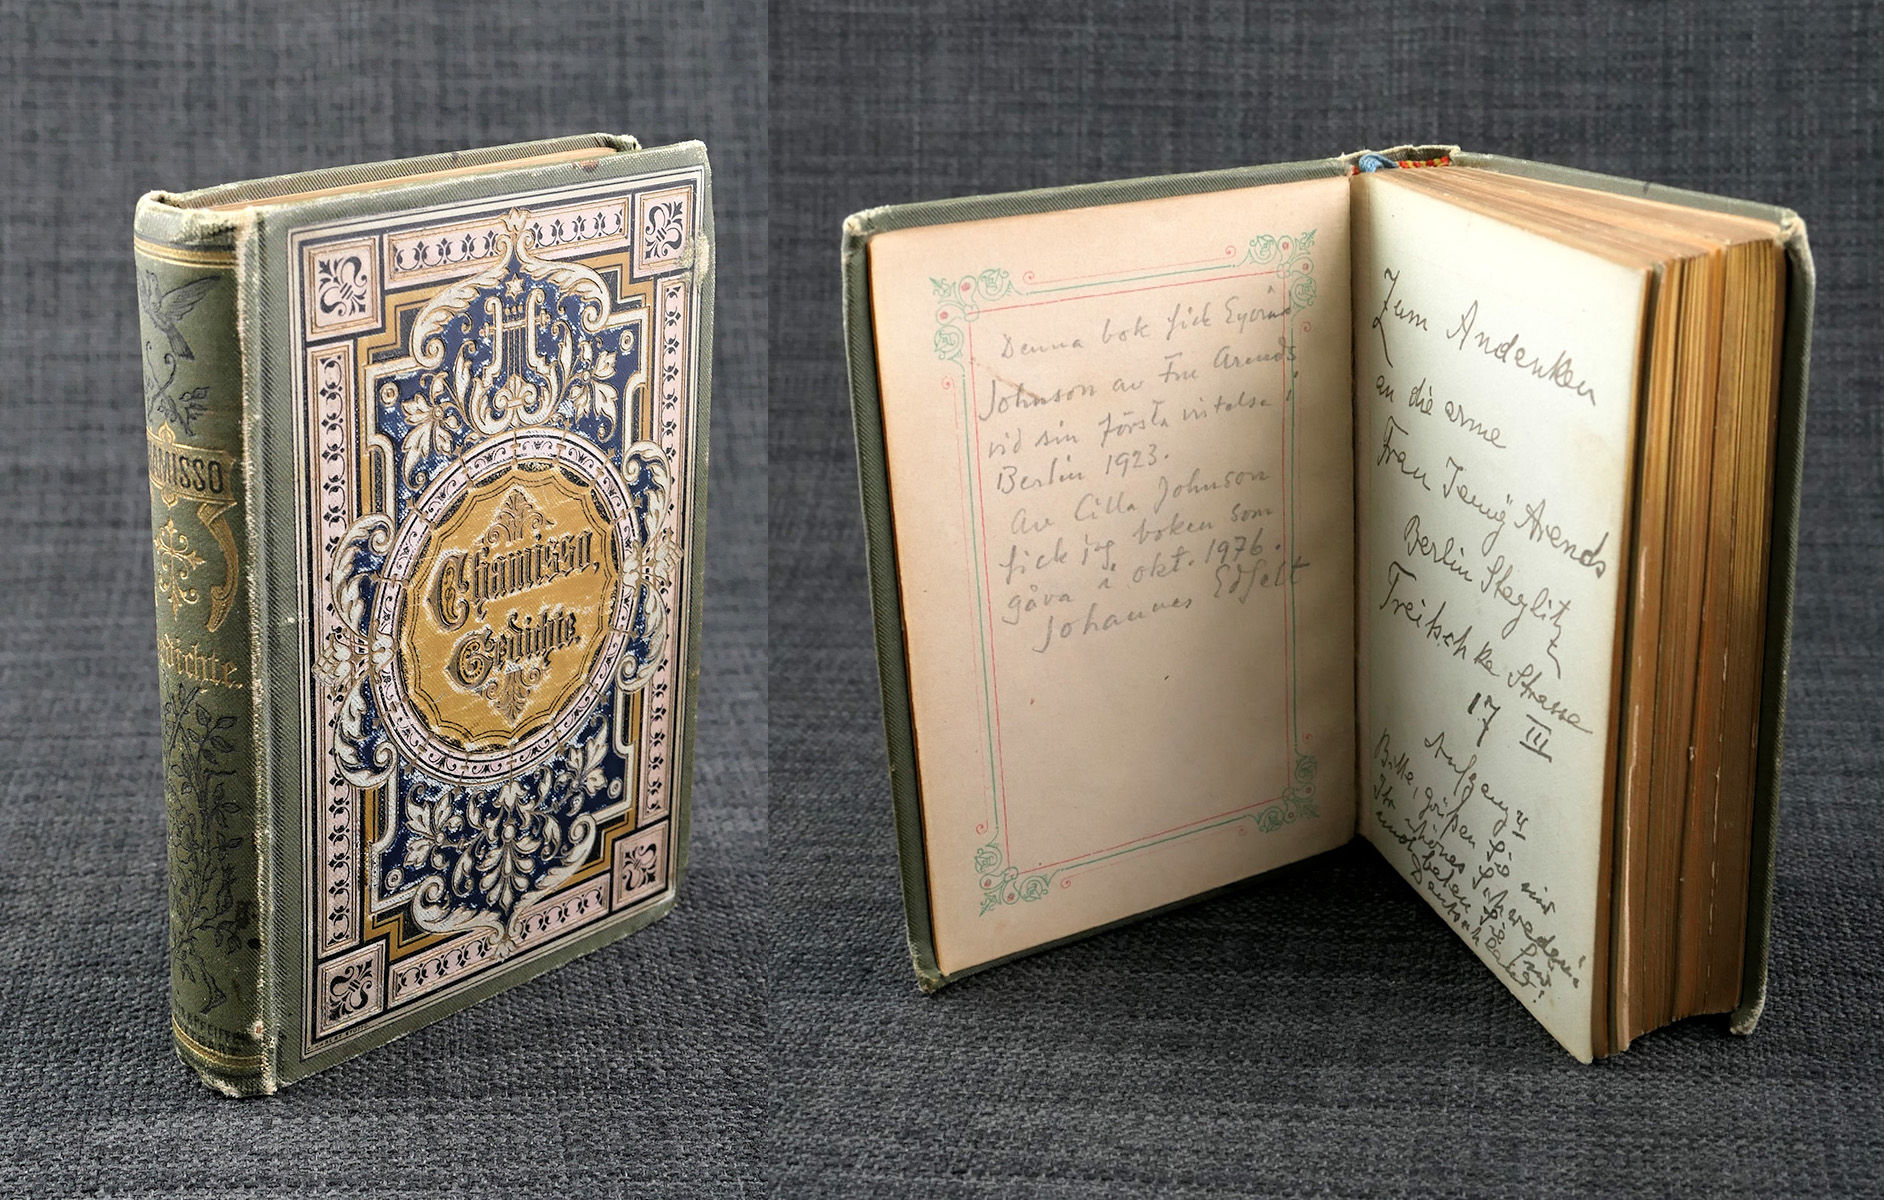 Chamisso,
Gedichte.
Denna bok fick Eyvind
Johnson av Fru Arends
vid sin första vistelse i
Berlin 1923.
Av Cilla Johnson
fick jag boken som
gåva i okt. 1976.
Johannes Edfelt
Zum Andenken
an die arme
Frau Jenny Arends
Berlin Steglitz
Treitschke Strasse
17 III
Aufgang II
Bitte, grüßen Sie mir
Ihr schönes Schweden
und beten Sie für
Deutschland!